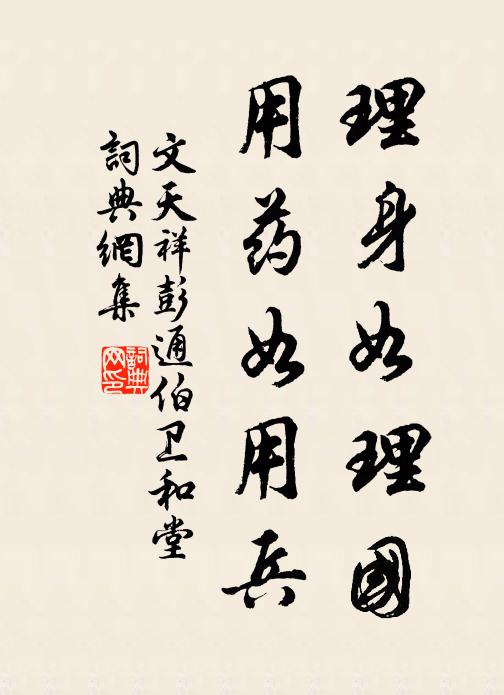 理身如理國
用药如用兵
文天祥彭通伯卫和堂
詞典網集
詞典网印